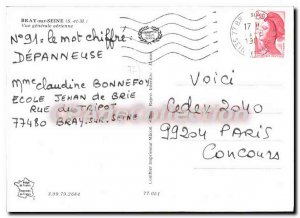 BRAY-sur-SEINE (S.-et-M.)
Vue générale aérienne
N°91: le mot chiffre:
DÉPANNEUSE
Mme Claudine BONNEFOY
ECOLE JEHAN de BRIE
RUE du TRIPOT
77480 BRAY-SUR-SEINE
VOICI
Cedex 2040
99204 PARIS
CONCOURS
3.99.79.2084
77-051